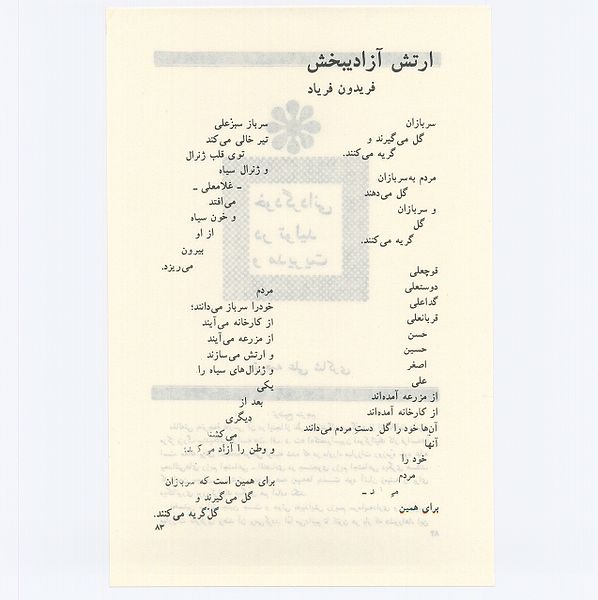 ارتش آزادیبخش
فریدون فریاد
سربازان
گل می‌گیرند و
گریه می‌کنند.
مردم به‌سربازان
گل می‌دهند
و سربازان
گل
گریه می‌کنند.
قوچعلی
دوستعلی
گداعلی
قربانعلی
حسن
حسین
اصغر
علی
از مزرعه آمده‌اند
از کارخانه آمده‌اند
آن‌ها خود را گل دست مردم می‌دانند
آنها
خود را
مردم
برای همین
سرباز سبزعلی
تیر خالی می‌کند
توی قلب ژنرال
و ژنرال سیاه
ـ غلامعلی ـ
می‌افتد
و خون سیاه
از او
بیرون
می‌ریزد.
مردم
خودرا سرباز می‌دانند؛
از کارخانه می‌آیند
از مزرعه می‌آیند
و ارتش می‌سازند
و ژنرال‌های سیاه را
یکی
بعد از
دیگری
می‌کشند
و وطن را آزاد می‌کنند؛
برای همین است که سربازان
گل می‌گیرند و
گل‌گریه می‌کنند.
۸۳